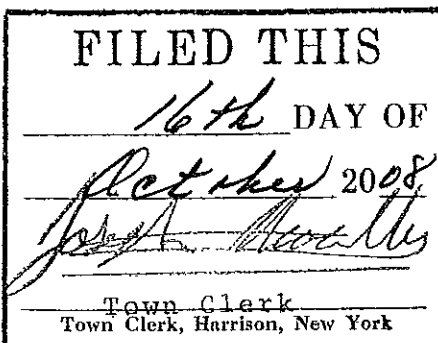 FILED THIS
16th DAY OF
October 2008
Town Clerk
Town Clerk, Harrison, New York